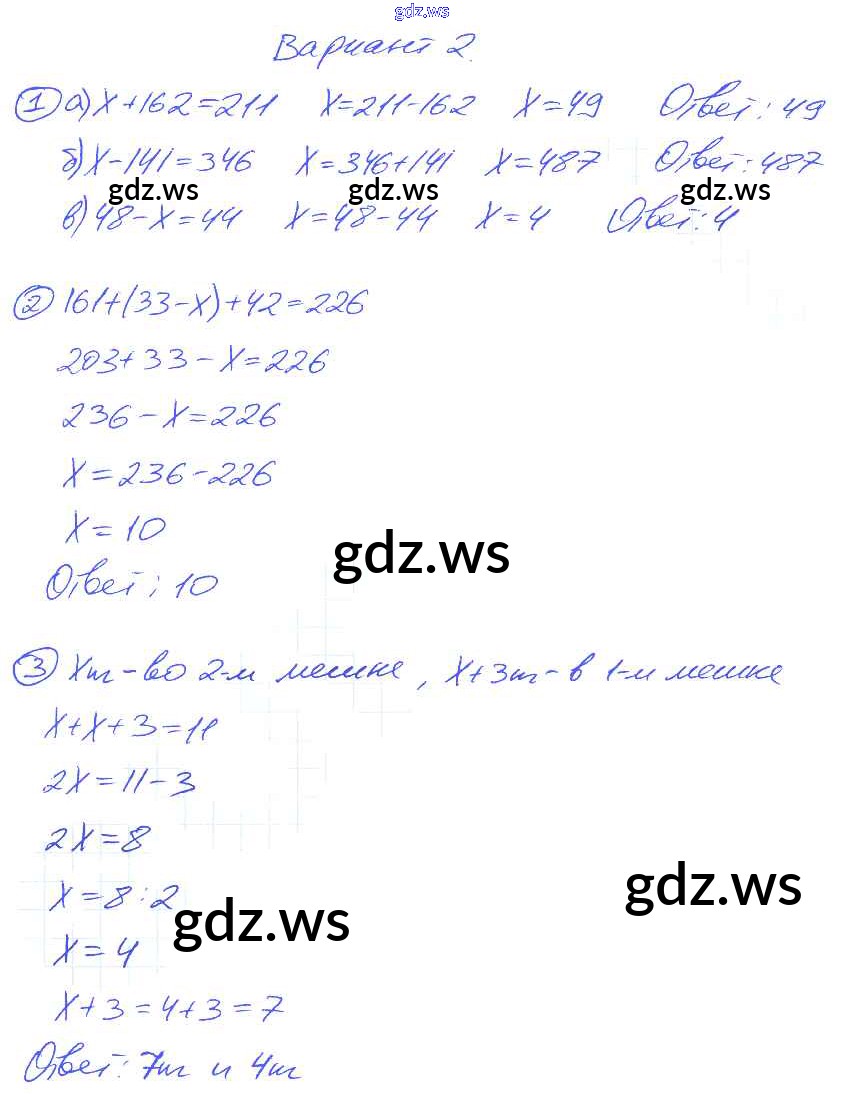 gdz.ws
Вариант 2.
① а) x+162=211 x=211-162 x=49 Ответ: 49
б) x-141=346 x=346+141 x=487 Ответ: 487
gdz.ws gdz.ws gdz.ws
в) 48-x=44 x=48-44 x=4 Ответ: 4
② 161+(33-x)+42=226
203+33-x=226
236-x=226
x=236-226
x=10
gdz.ws
Ответ: 10
③ xm-во 2-м мешке, x+3m-в 1-м мешке
x+x+3=11
2x=11-3
2x=8
x=8:2
gdz.ws gdz.ws
x=4
x+3=4+3=7
Ответ: 7m и 4m